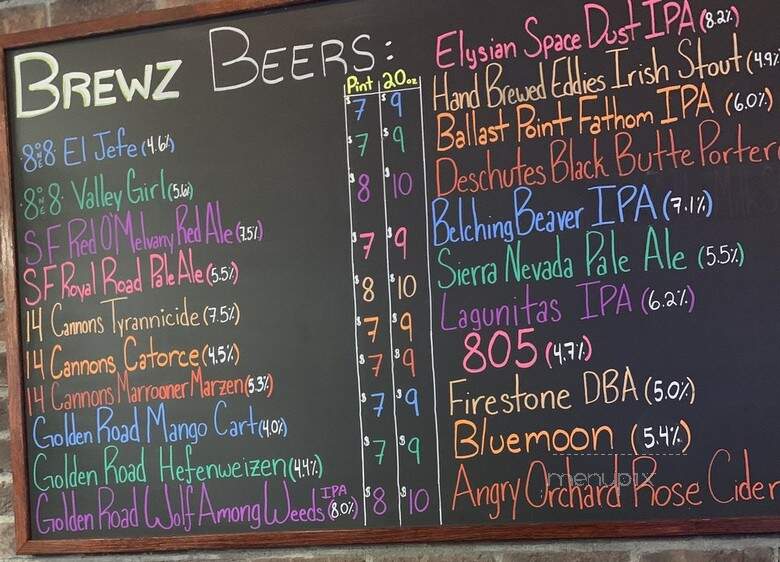 BREWZ BEERS:
Pint 20oz
8ONE8 El Jefe (4.6%) $7 $9
8ONE8 Valley Girl (5.6%) $7 $9
SF Red O'Melvany Red Ale (7.5%) $8 $10
SF Royal Road Pale Ale (5.5%) $7 $9
14 Cannons Tyrannicide (7.5%) $8 $10
14 Cannons Catorce (4.5%) $7 $9
14 Cannons Marrooner Marzen (5.3%) $7 $9
Golden Road Mango Cart (4.0%) $7 $9
Golden Road Hefenweizen (4.4%) $7 $9
Golden Road Wolf Among Weeds IPA (8.0%) $8 $10
Elysian Space Dust IPA (8.2%)
Hand Brewed Eddies Irish Stout (4.9%
Ballast Point Fathom IPA (6.0%)
Deschutes Black Butte Porter
Belching Beaver IPA (7.1%)
Sierra Nevada Pale Ale (5.5%)
Lagunitas IPA (6.2%)
805 (4.7%)
Firestone DBA (5.0%)
Bluemoon (5.4%)
Angry Orchard Rose Cider
menupix